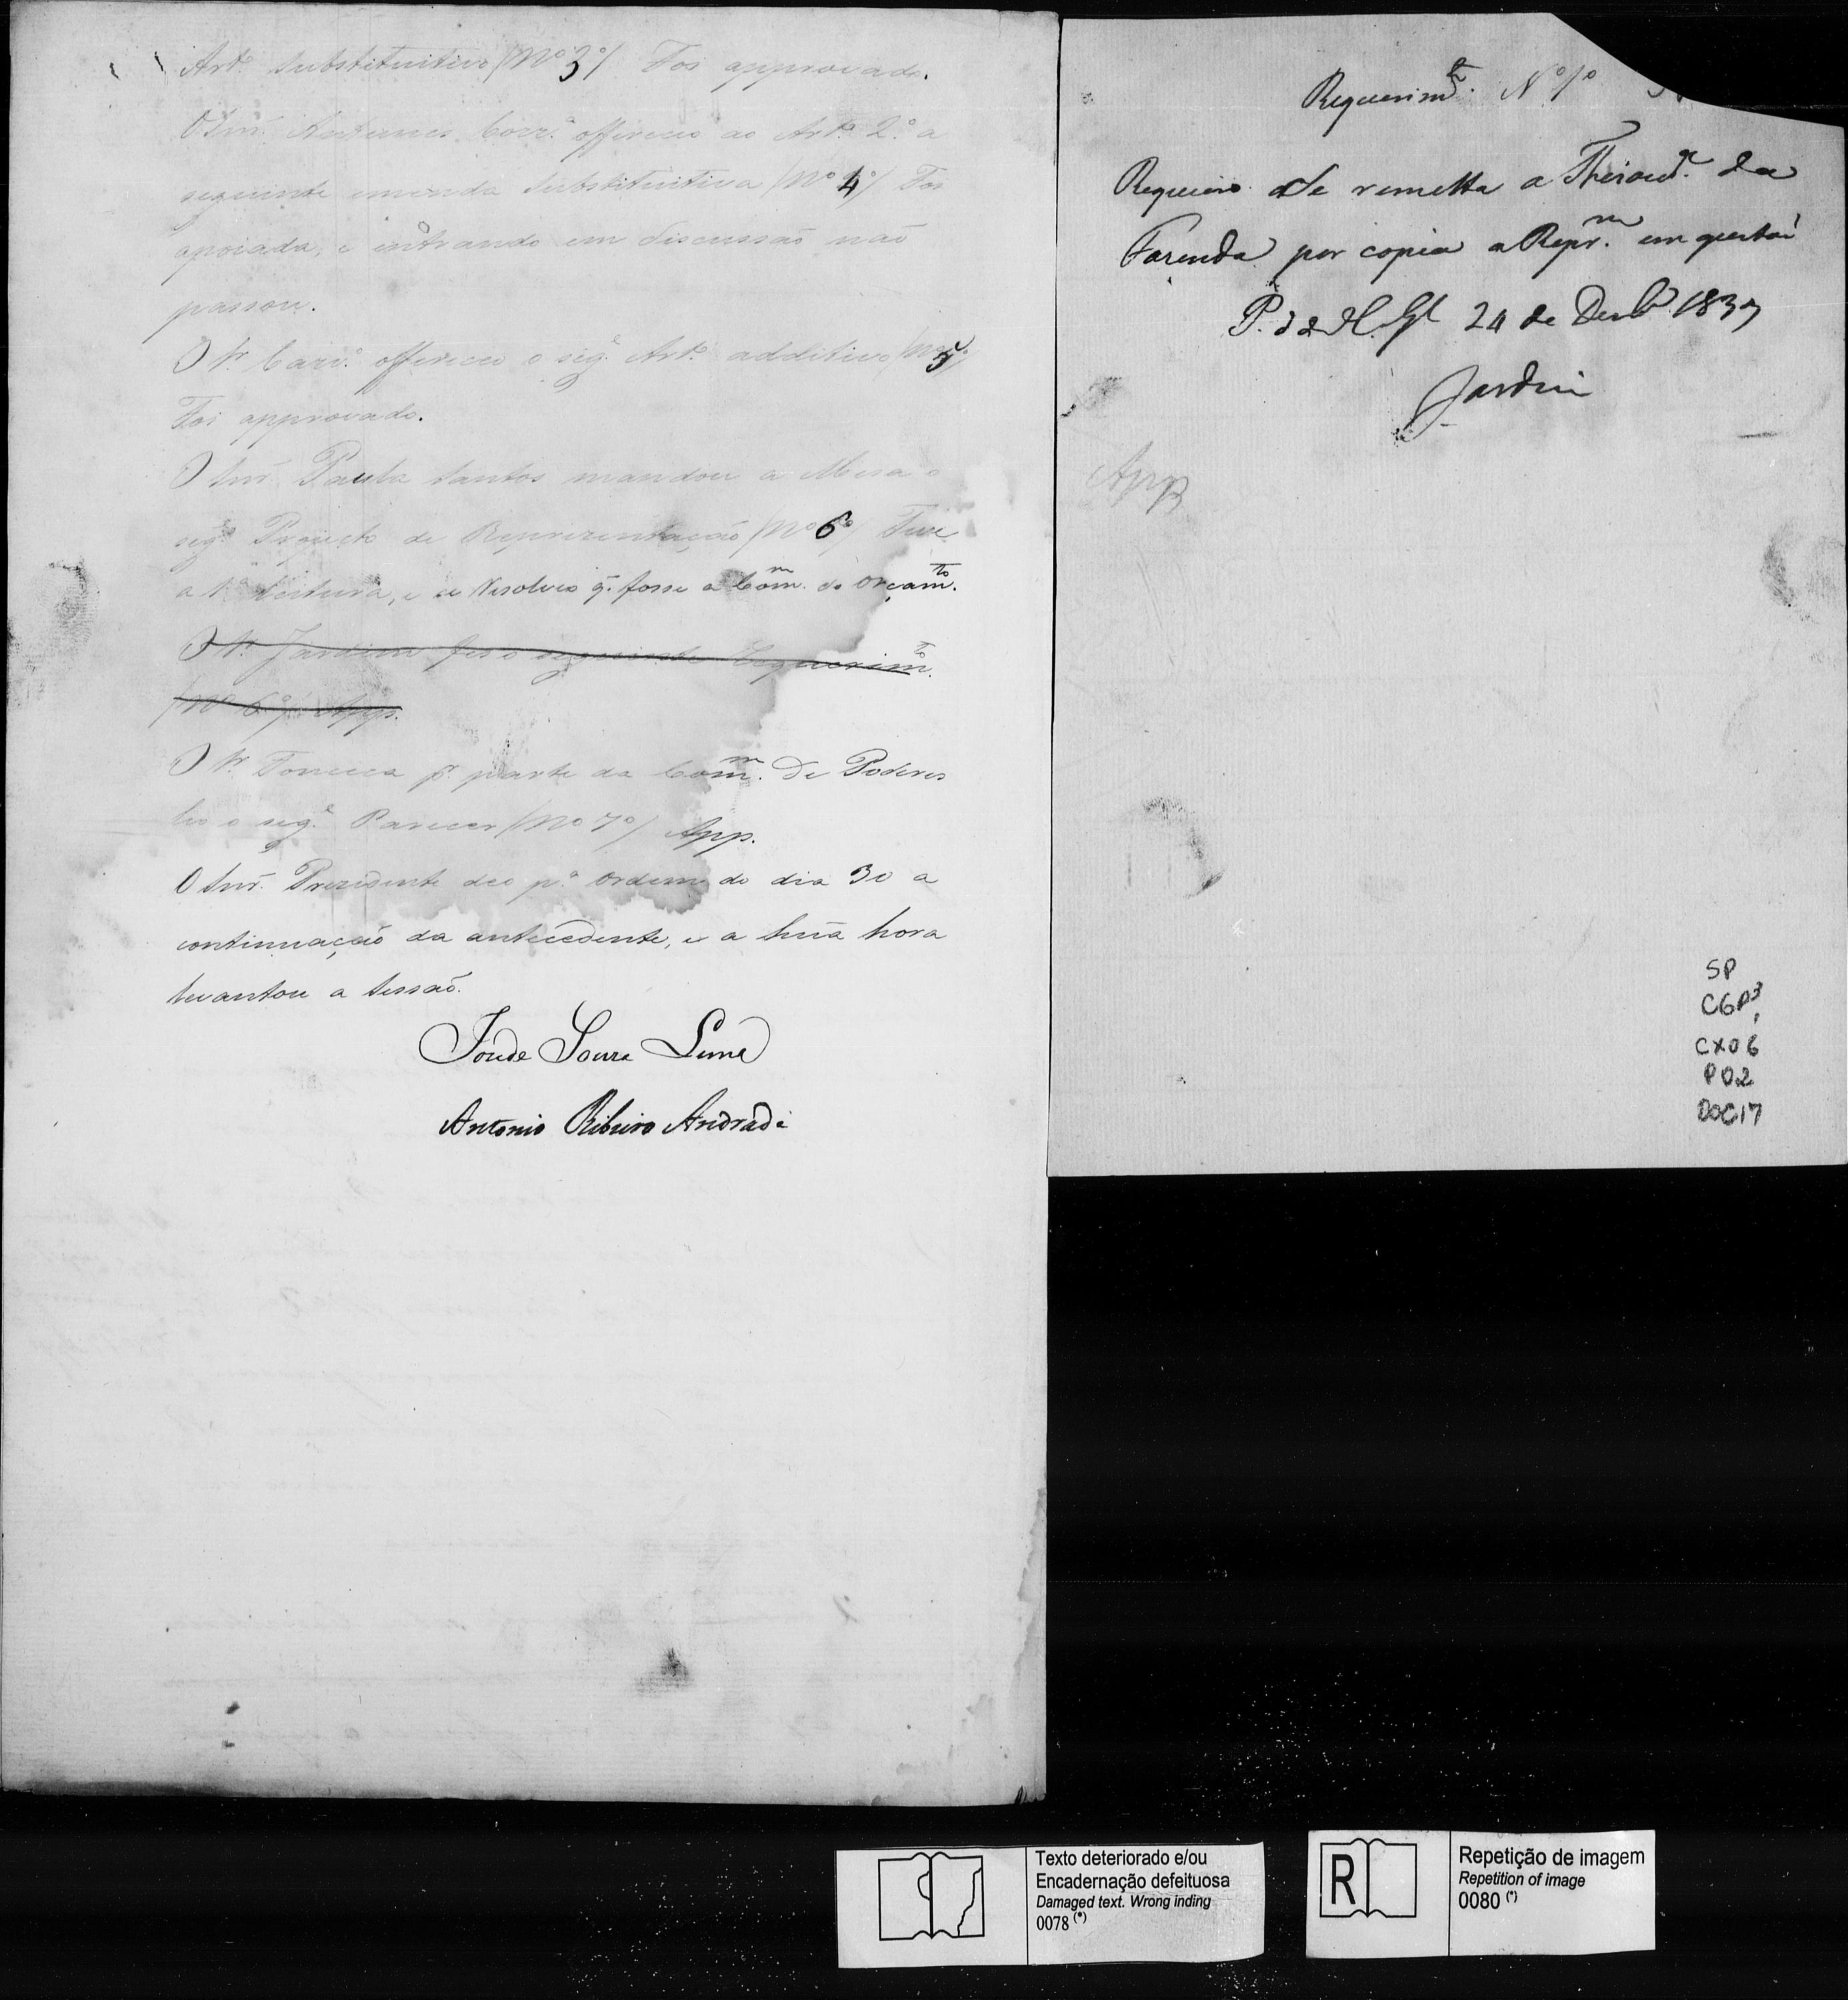 Art.º Substituitivo (Nº 3º) Foi approvado.
O Snr. Antunes Corr.ª offereceo ao Art.º 2.º a
seguinte emenda Substituitiva (Nº 4º) Foi
apoiada, e entrando em discussaõ naõ
passou.
O Sr. Carv.º offereceo o seg.e Art.º additivo (Nº 5º)
Foi approvado.
O Snr. Paula Santos mandou a Mesa o
seg.e Projecto de Reprezentaçaõ (Nº 6º) Teve
a 1.ª Leitura, e se Resolveo q. fosse a Com.m do Orçam.to
O Sr. Jardim fes o seguinte Requerim.to
(Nº 6º) App.
O Sr. Fonseca p.r parte da Com.m De Poderes
leo o seg.e Parecer (Nº 7º) App.
O Snr. Prezidente deo p.ª ordem do dia 30 a
continuaçaõ da antecedente, e a huã hora
levantou a Sessaõ.
Antonio Ribeiro Andrade
Requerim.to Nº 1º
Requeiro Se remetta a Thesour.ª da
Fazenda por copia a Repr.m em questaõ
P. 24 de Dezb.º 1837
Jardim
App
SP
CGP3,
CX06
P02
DOC17
Texto deteriorado e/ou
Encadernação defeituosa
Damaged text. Wrong inding
0078 (*)
R
Repetição de imagem
Repetition of image
0080 (*)